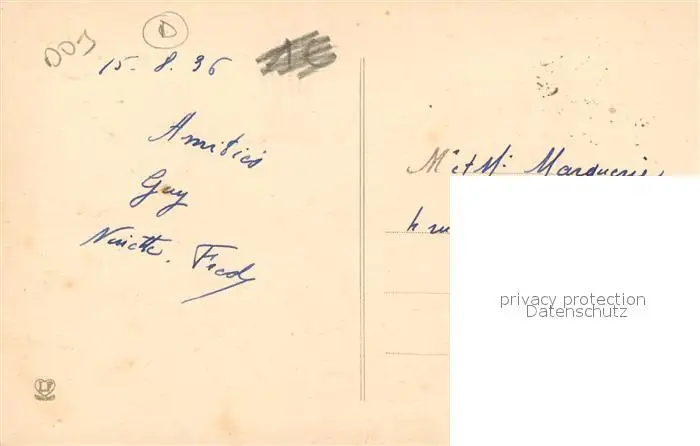 DO3
D
15. 8. 36
Amitiés
Guy
Ninette. Fred
M et M:
4 rue
privacy protection
Datenschutz